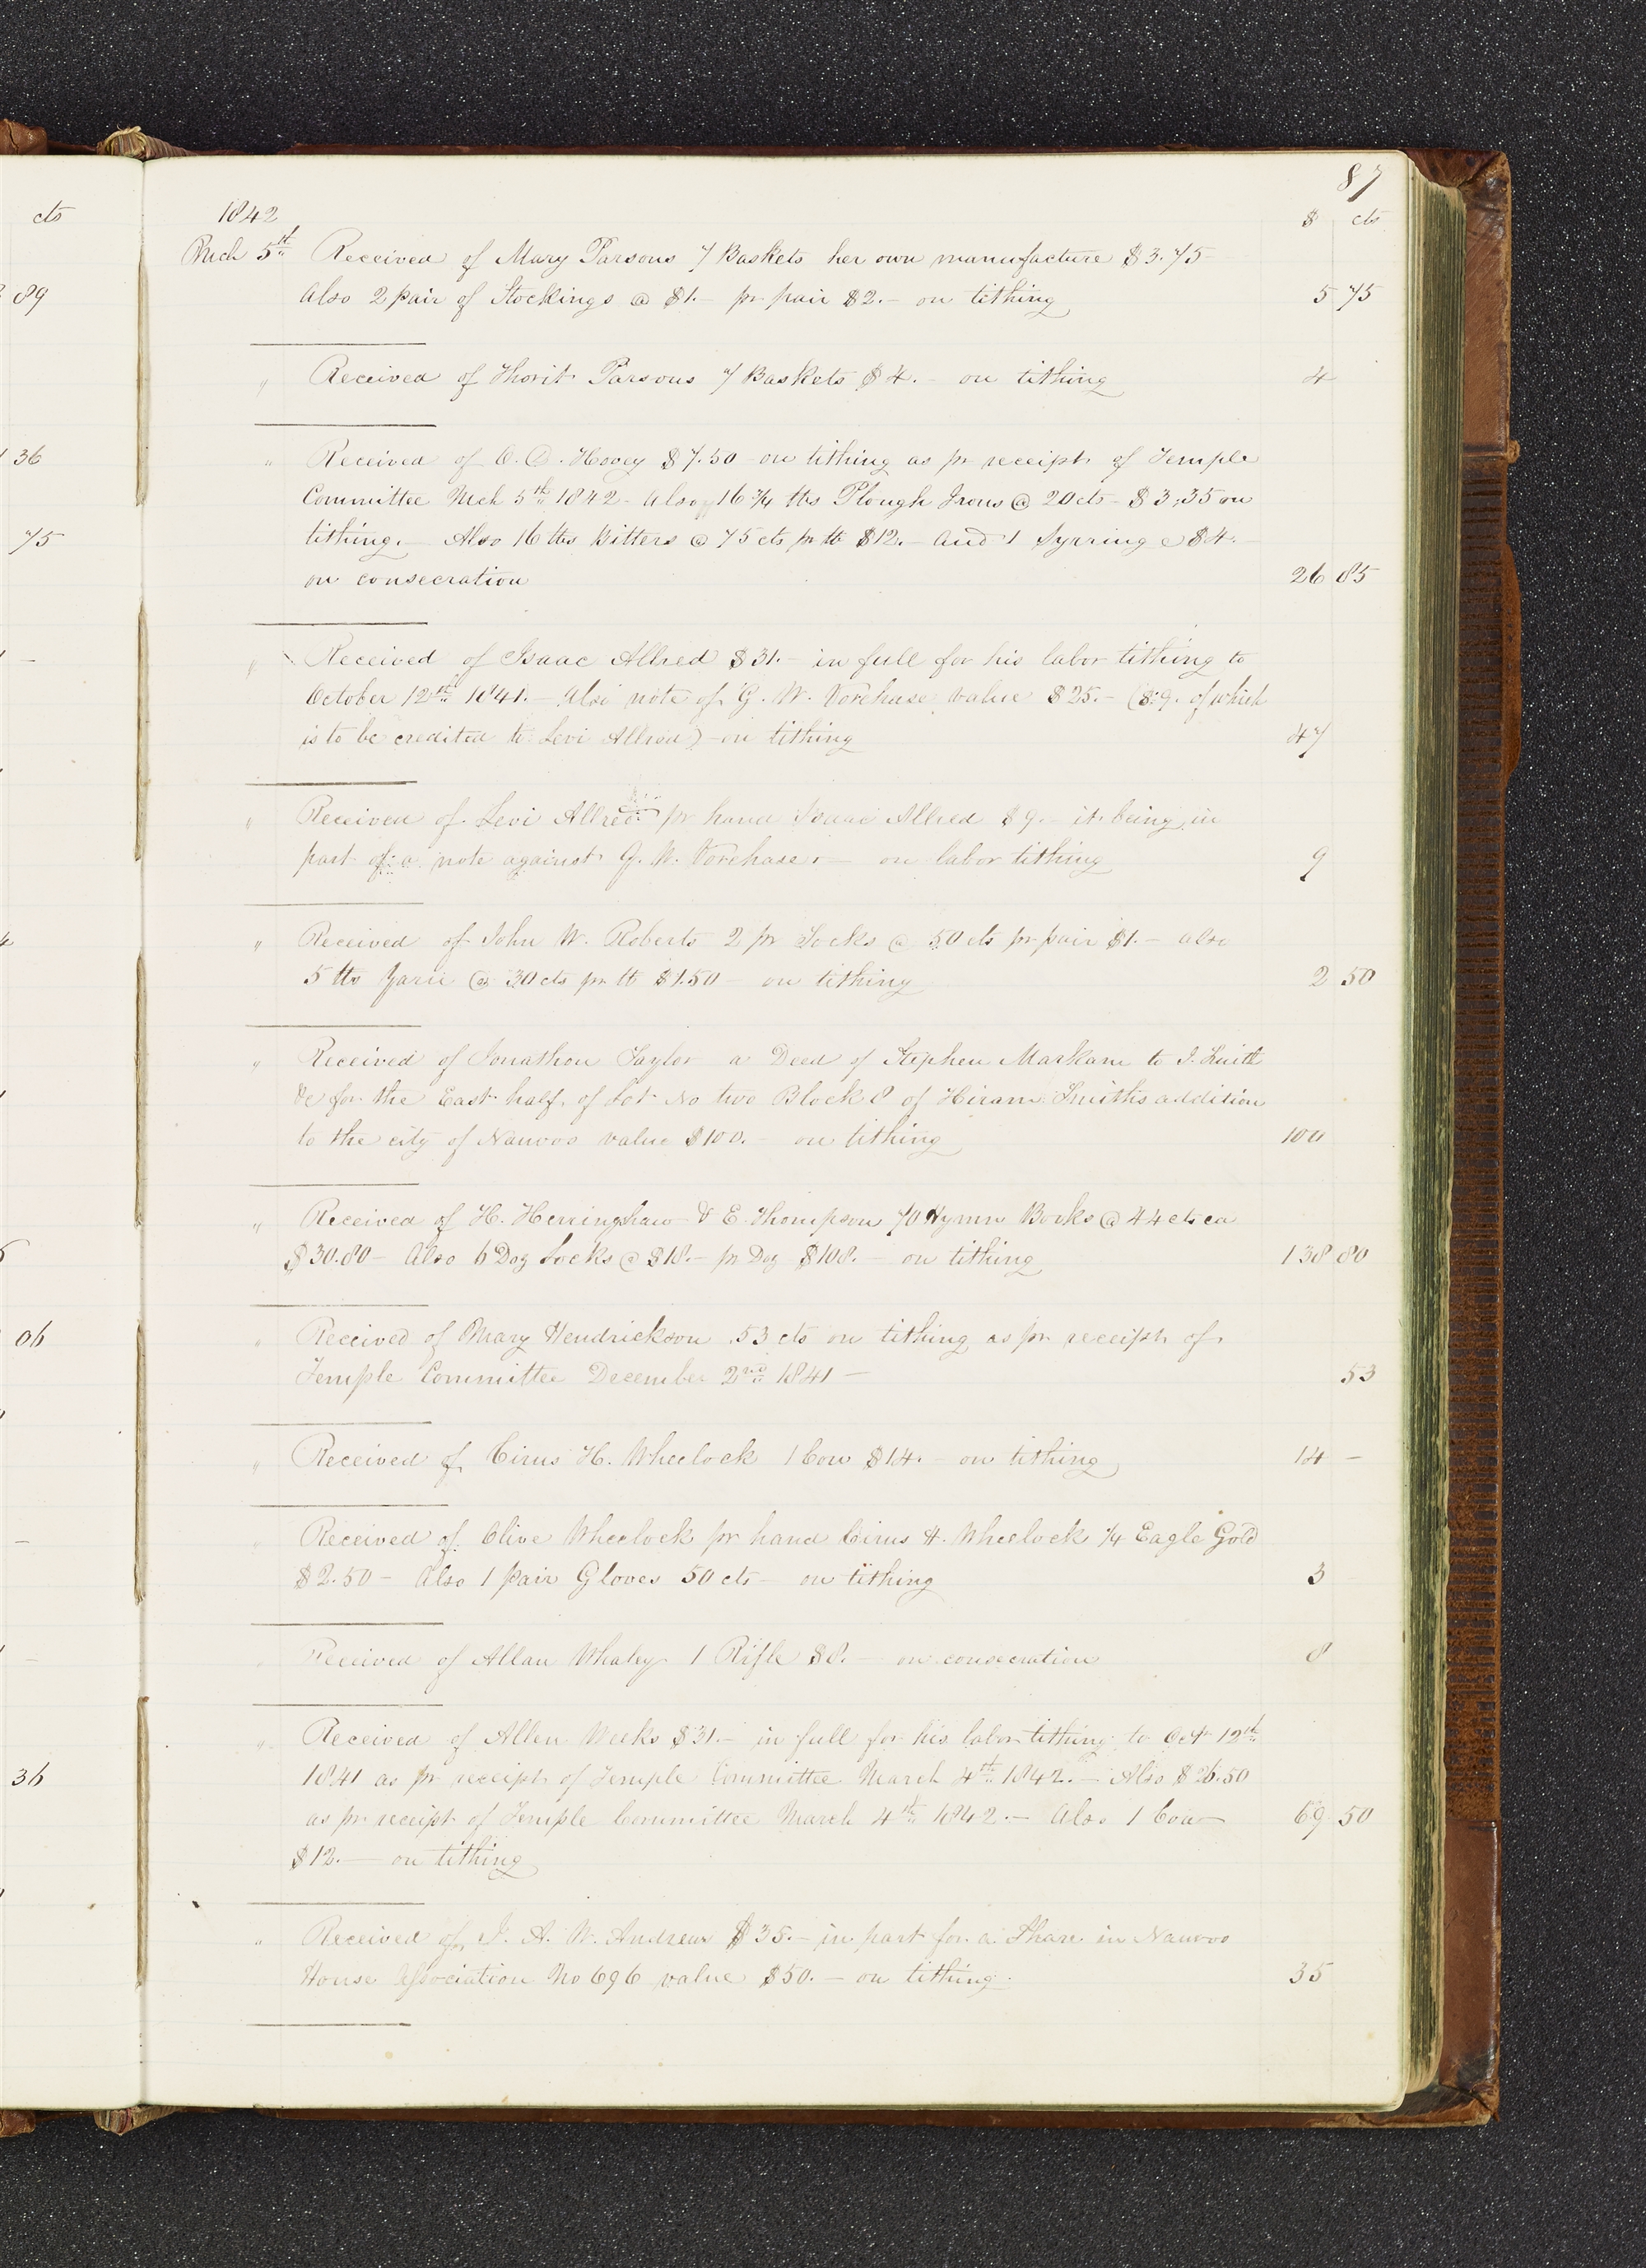 87
cts
1842
$ cts
Mch 5th Received of Mary Parsons 7 Baskets her own manufacture $3.75
89
Also 2 pair of Stockings @ $1.– pr pair $2.– on tithing 5 75
" Received of Thorit Parsons 7 Baskets $4.– on tithing 4
36
" Received of O. D. Hovey $7.50 on tithing as pr receipt of Temple
Committee Mch 5th 1842 – Also 16 3/4 lbs Plough Irons @ 20 cts – $3.35 on
75
tithing.– Also 16 lbs Bitters @ 75 cts pr lb $12.– and 1 Syrringe $4.–
on consecration 26 85
" Received of Isaac Allred $31.– in full for his labor tithing to
October 12th 1841.– Also note of G. W. Vorehase value $25.– ($9. of which
is to be credited to Levi Allred) – on tithing 47
" Received of Levi Allred pr hand Isaac Allred $9.– it being in
part of a note against G. W. Vorehase – on labor tithing 9
" Received of John W. Roberts 2 pr Socks @ 50 cts pr pair $1.– also
5 lbs Yarn @ 30 cts pr lb $1.50 – on tithing 2 50
" Received of Jonathon Taylor a Deed of Stephen Markam to J. Smith
&c for the East half of Lot No two Block 8 of Hiram Smiths addition
to the city of Nauvoo value $100.– on tithing 100
" Received of H. Herringshaw & E. Thompson 70 Hymn Books @ 44 cts ea
$30.80 – Also 6 Doz Locks @ $18.– pr Doz $108.– on tithing 138 80
" Received of Mary Hendrickson .53 cts on tithing as pr receipt of
06
Temple Committee December 2nd 1841 – 53
" Received of Cirus H. Wheelock 1 Cow $14.– on tithing 14 –
" Received of Olive Wheelock pr hand Cirus H. Wheelock 1/4 Eagle Gold
$2.50 – Also 1 pair Gloves 50 cts – on tithing 3
" Received of Allan Whaley 1 Rifle $8.– on consecration 8
" Received of Allen Weeks $31.– in full for his labor tithing to Oct 12th
36
1841 as pr receipt of Temple Committee March 4th 1842.– Also $26.50
as pr receipt of Temple Committee March 4th 1842.– Also 1 Cow – 69 50
$12.– on tithing
" Received of J. A. W. Andrew $35.– in part for a Share in Nauvoo
House Association No 696 value $50.– on tithing. 35